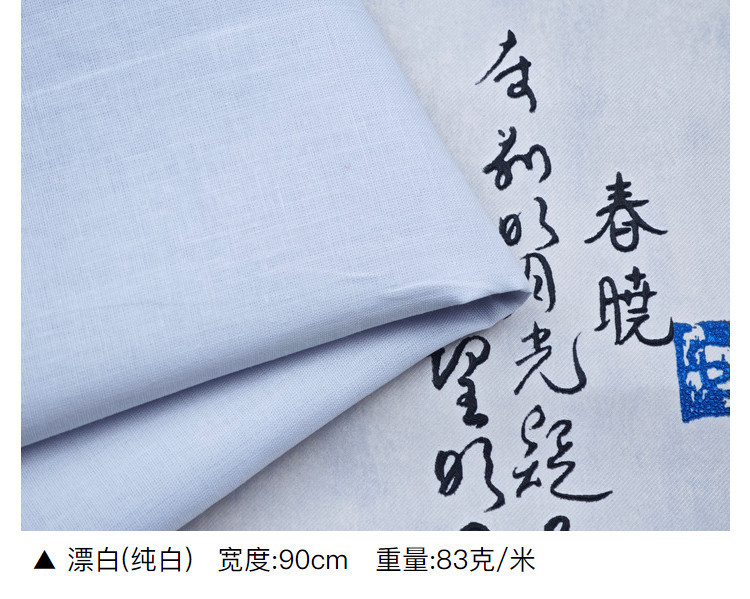 春曉
床前明月光疑
望明
▲ 漂白(纯白) 宽度:90cm 重量:83克/米